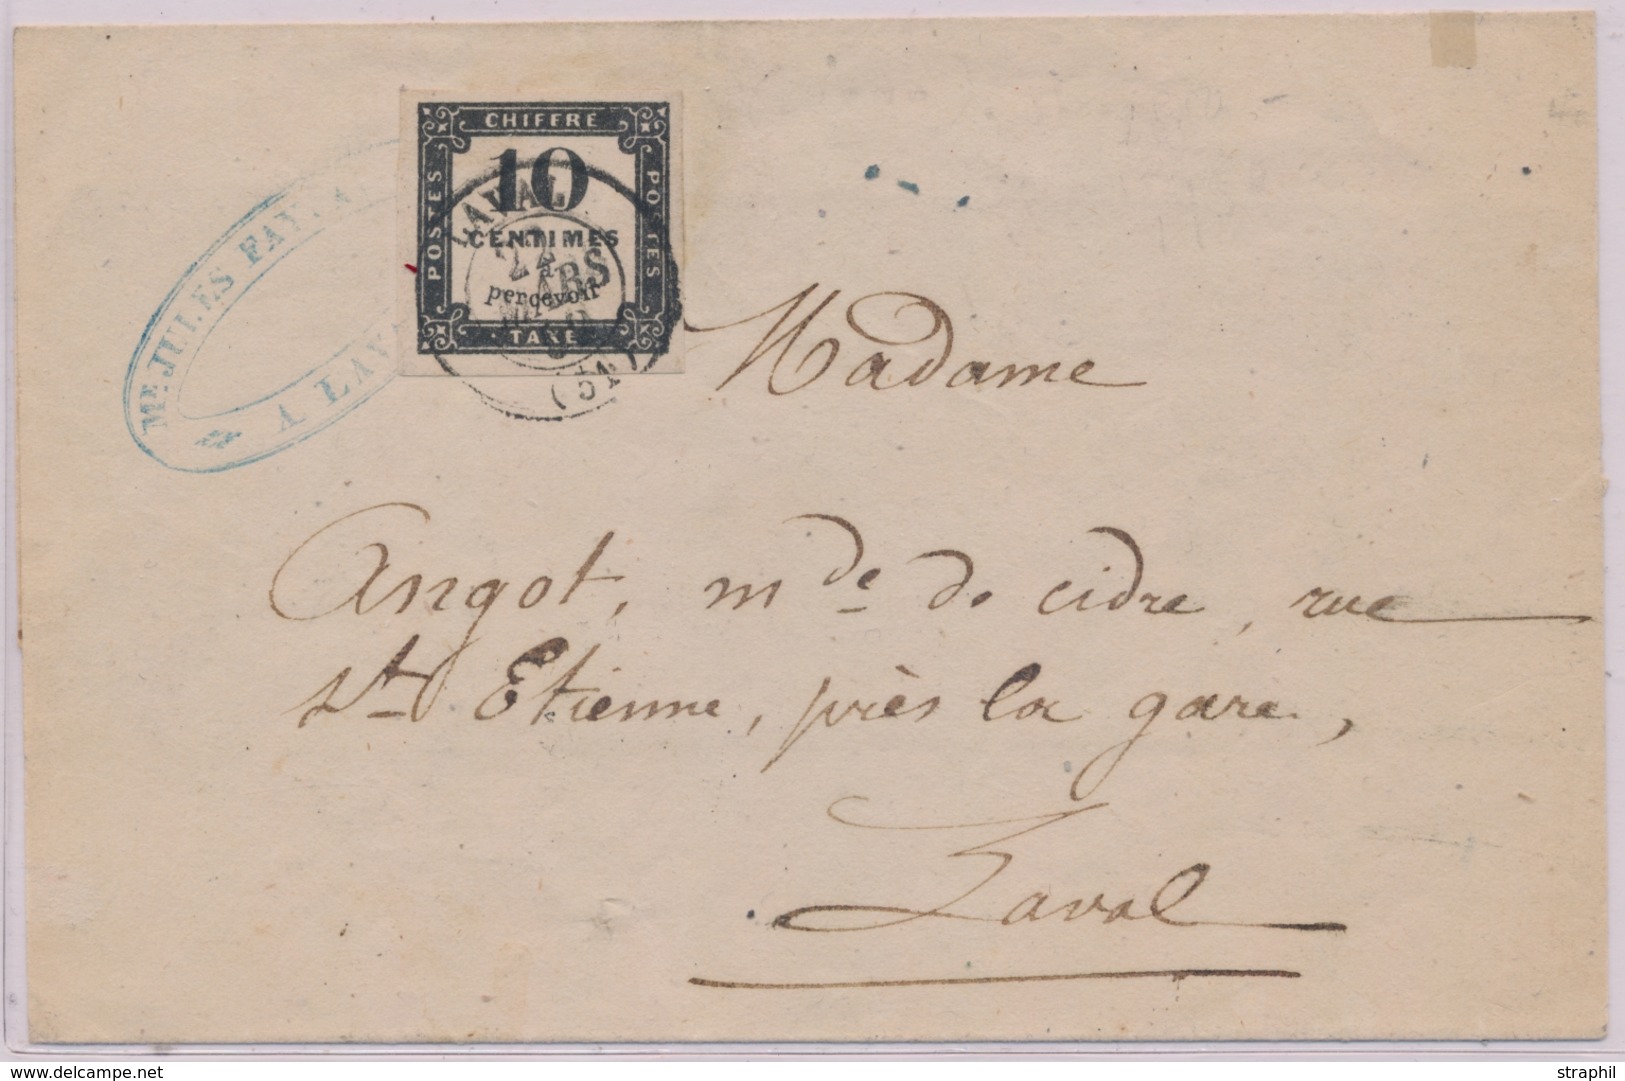 CHIFFRE
POSTES
10
POSTES
CENTIMES
à
percevoir
TAXE
LAVAL
22
MARS
(51)
Md. JULES FAV
A LAV
Madame
Angot, mde de cidre, rue
St Etienne, près la gare,
Laval
© straphil - delcampe.net
straphil